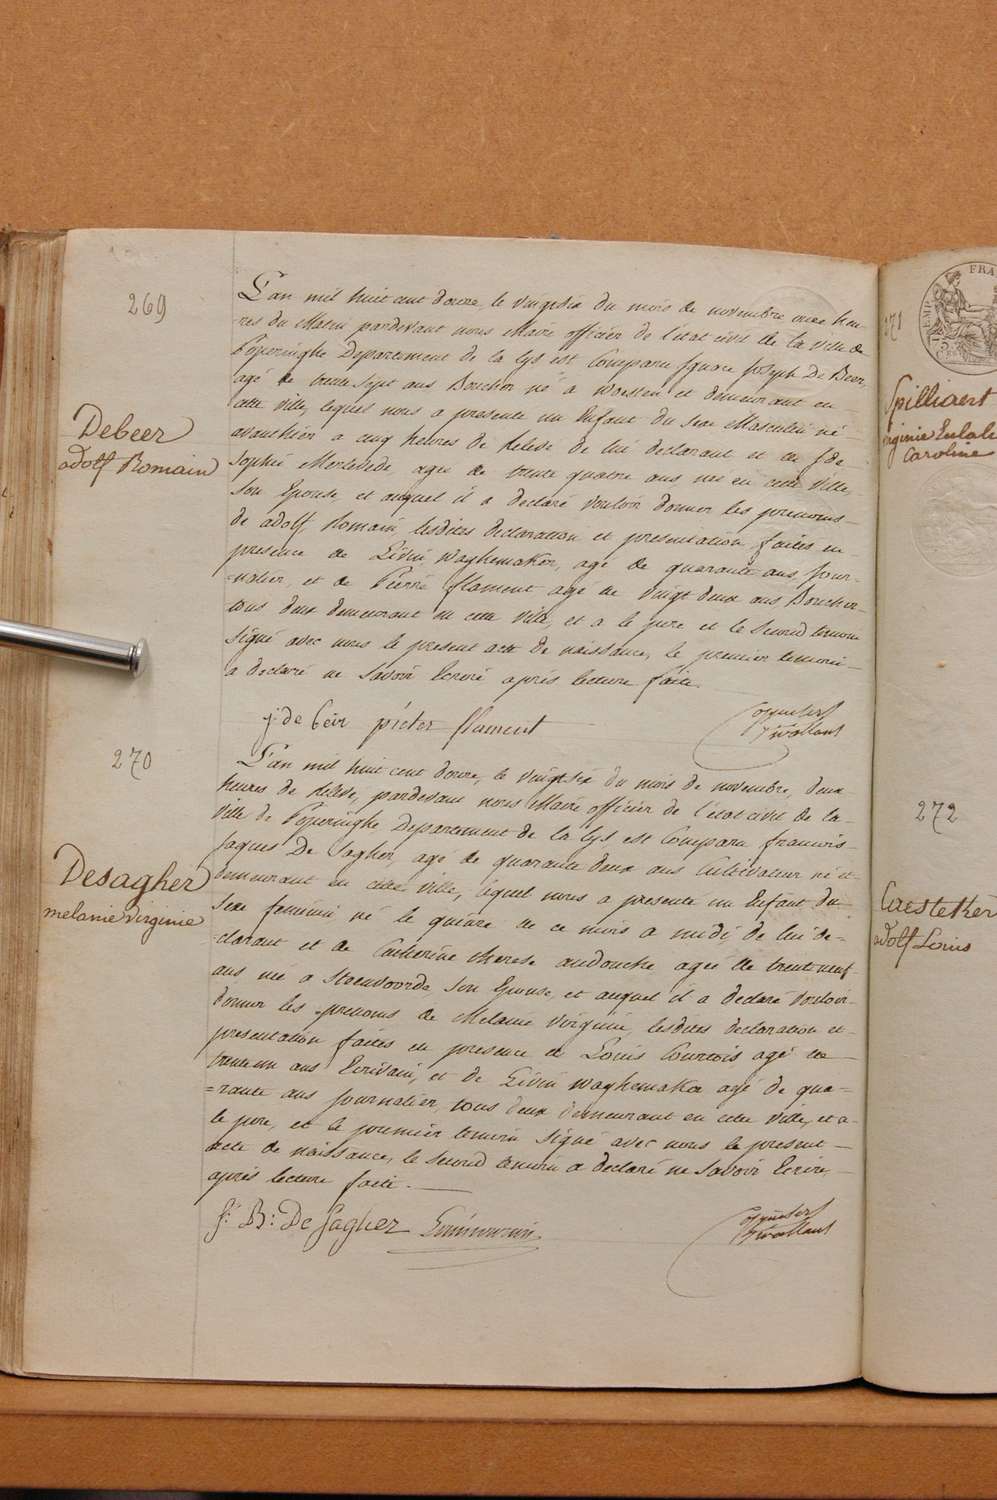 269
Debeer
adolf Romain
L'an mil huit cent douze, le vingtsix du mois de novembre onze heu-
res du Matin pardevant nous Maire officier de l'état civil de la ville de
Poperinghe Département de la Lys est Comparu Ignace Joseph De Beer,
agé de trente sept ans Boucher né a Woesten et demeurant en
cette ville, lequel nous a presenté un Enfant du sexe Masculin né
avanthier a cinq heures de Relevé de lui declarant et de
Sophie Merlevede agée de trente quatre ans née en cette ville,
son Epouse et auquel il a declaré vouloir donner les prenoms
de adolf Romain lesdites declaration et presentation faites en
presence de Livin Waghemaker, agé de quarante ans, Jour-
=nalier, et de Pierre flament agé de vingt deux ans Boucher
tous deux demeurant en cette ville, et a le pere et le second temoin
signé avec nous le present acte de naissance, le premier temoin
a declaré ne savoir Ecrire après lecture faite.
j: de beir pieter flament
270
Desagher
melanie virginie
L'an mil huit cent douze, le vingtsix du mois de novembre, deux
heures de relevé, pardevant nous Maire officier de l'état civil de la
ville de Poperinghe Departement de la Lys est Comparu francois
Jaques De Sagher, agé de quarante deux ans Cultivateur né et
demeurant en cette ville, lequel nous a presenté un Enfant du
sexe feminin né le de ce mois a midi de lui de-
=clarant et de Catherine therese audouche agée de trent neuf
ans née a Steenvoorde son Epouse, et auquel il a declaré vouloir
donner les prenoms de Melanie Virginie, lesdites declaration et
presentation faites en presence de Louis Courtois agé de
trente un ans Ecrivain, et de Livin Waghemaker agé de qua-
=rante ans journalier, tous deux demeurant en cette ville, et a
le pere, et le premier temoin signé avec nous le present
acte de naissance, le second temoin a declaré ne savoir Ecrire
après lecture faite.
f: B: De Sagher
271
Spilliaert
virginie Eulalie
Caroline
FRA
TEMP
272
Caesteker
adolf Louis